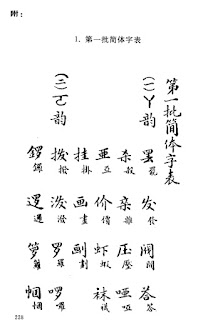 附:
1. 第一批简体字表
第一批简体字表
(一)ㄚ韵
罢罷 发發 阀閥 荅答
杀殺 杂雜 压壓 哑啞
亚亞 价價 虾蝦 袜襪
挂掛 画畫 㓰劃
(二)ㄛ韵
拨撥 泼潑 罗羅 啰囉
锣鑼 逻邏 箩籮 帼幗
228